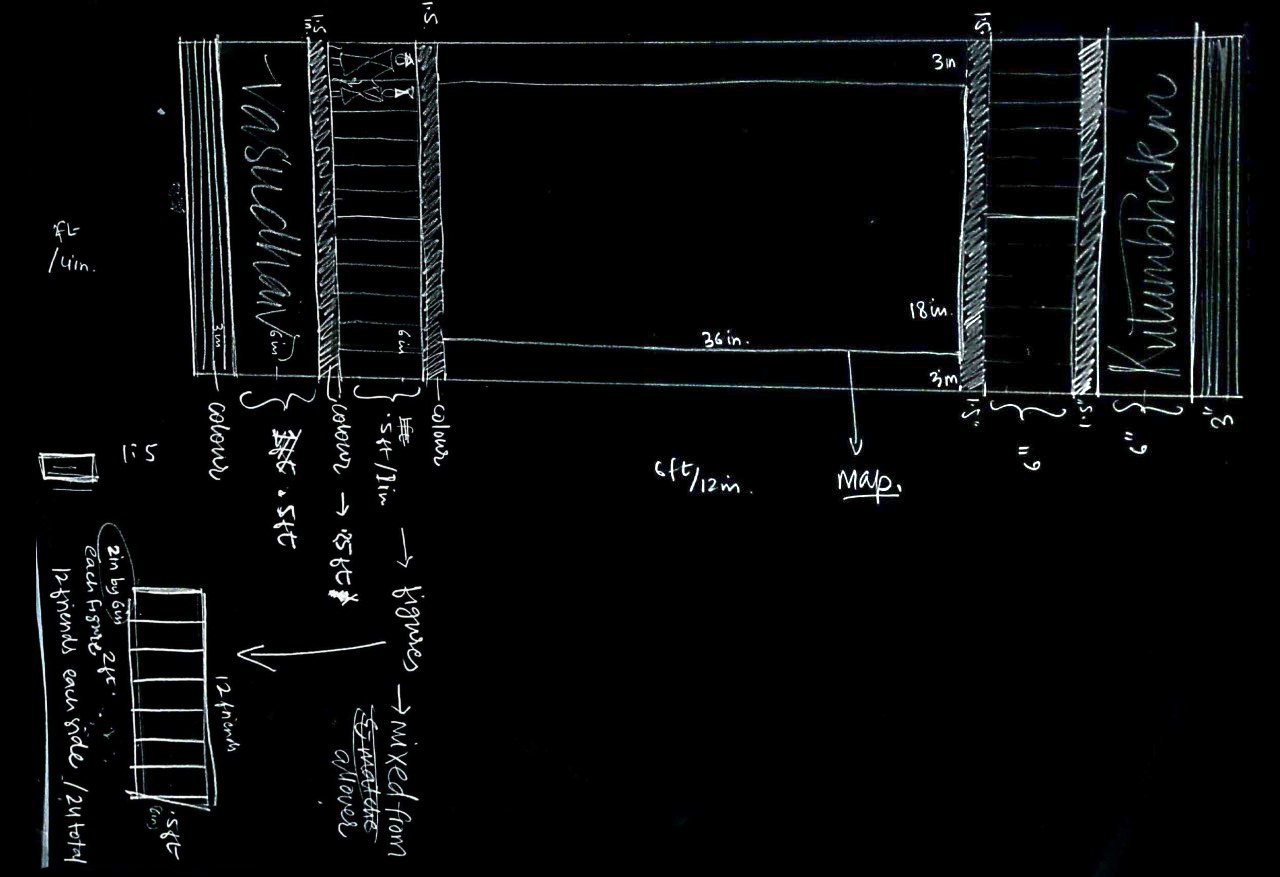 1.5
1.5"
1.5
3in
Vasudhaiv
Kutumbhakem
ft
/4in.
3in
6in
6in
36in.
18in.
3in
1.5"
6"
1.5"
6"
3"
colour
.5ft
colour → .25ft
.5ft/1in
colour
6ft/12in.
map.
1:5
→ figures → mixed from
all over
12 friends
2in by 6in
each figure
2ft.
.5ft
(6in)
12 friends each side / 24 total